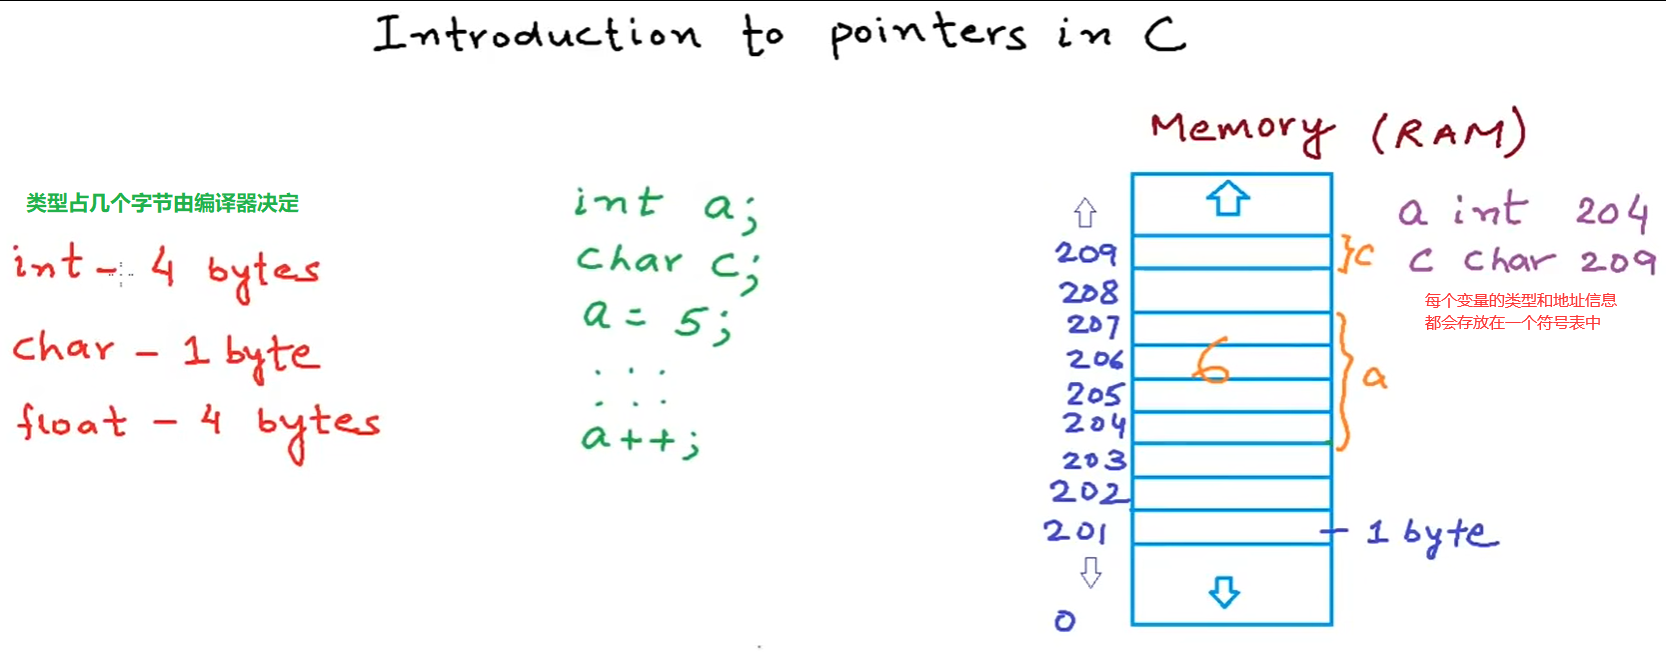 Introduction to pointers in C
Memory (RAM)
类型占几个字节由编译器决定
int - 4 bytes
char - 1 byte
float - 4 bytes
int a;
char c;
a = 5;
. . .
. . .
a++;
209
208
207
206
205
204
203
202
201
0
6
} c
} a
- 1 byte
a int 204
c char 209
每个变量的类型和地址信息
都会存放在一个符号表中